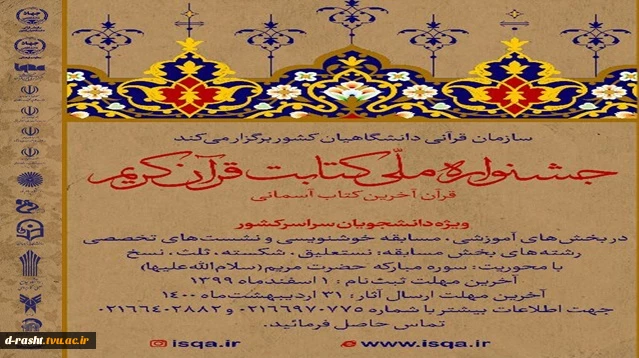 سازمان قرآنی دانشگاهیان کشور برگزار می‌کند
جشنواره ملّی کتابت قرآن کریم
قرآن آخرین کتاب آسمانی
ویژه دانشجویان سراسر کشور
در بخش‌های آموزشی . مسابقه خوشنویسی و نشست‌های تخصصی
رشته‌های بخش مسابقه: نستعلیق . شکسته . ثلث . نسخ
با محوریت: سوره مبارکه حضرت مریم (سلام‌الله‌علیها)
آخرین مهلت ثبت‌نام : ۱ اسفندماه ۱۳۹۹
آخرین مهلت ارسال آثار : ۳۱ اردیبهشت‌ماه ۱۴۰۰
جهت اطلاعات بیشتر با شماره ۰۲۱۶۶۹۷۰۷۷۵ و ۰۲۱۶۶۴۰۲۸۸۲
تماس حاصل فرمائید.
isqa.ir www.isqa.ir
d-rasht.tvu.ac.ir